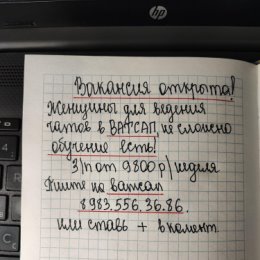 hp
Вакансия открыта!
Женщины для ведения
чатов в ВАТСАП, не сложно
обучение есть!
З/п от 9800 р/неделя
Пишите на ватсап
8983.556.36.86.
или ставь + в комент